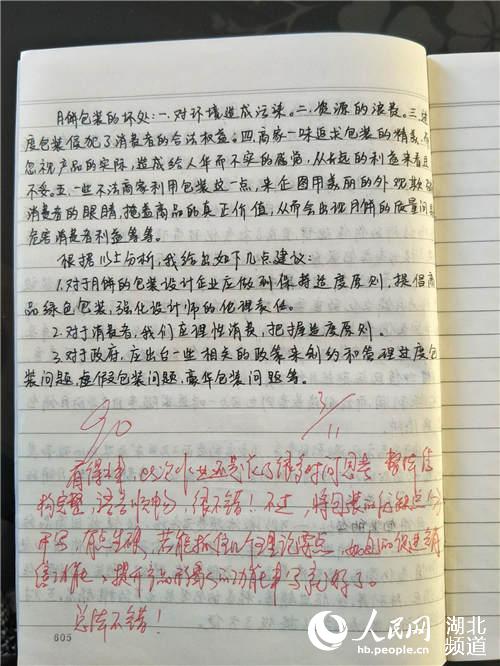 月饼包装的坏处:一.对环境造成污染。二.资源的浪费。三.过
度包装侵犯了消费者的合法权益。四.商家一味追求包装的精美,而
忽视产品的实际,造成给人华而不实的感觉,从长远的利益来看是
不妥。五.一些不法商家利用包装这一点,来企图用美丽的外观欺骗
消费者的眼睛,掩盖商品的真正价值,从而会出现月饼的质量问题
危害消费者利益等等。
根据以上分析,我给出如下几点建议:
1.对于月饼的包装设计企业应做到保持适度原则,提倡商
品绿色包装,强化设计师的伦理责任。
2.对于消费者,我们应理性消费,把握适度原则。
3.对于政府,应出台一些相关的政策来制约和管理过度包
装问题,虚假包装问题,豪华包装问题等。
90 3/11
看得出来,此次作业还是花了很多时间思考,整体结
构完整,语言顺畅,很不错!不过,将包装的优缺点分
开写,有点生硬,若能抓住几个理论要点,如包装的促进
功能,提升产品形象的功能来写就好了。
总体不错!
605
人民网 湖北
hb.people.cn